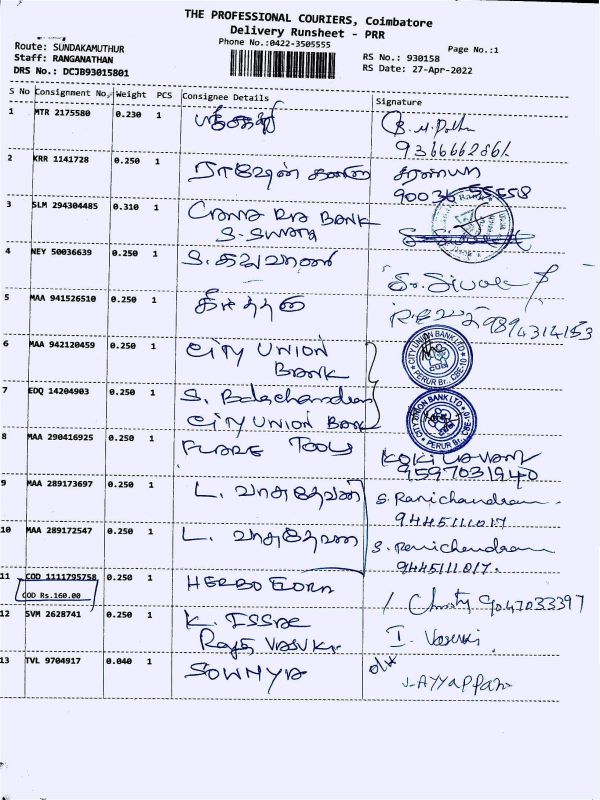 THE PROFESSIONAL COURIERS, Coimbatore
Delivery Runsheet - PRR
Phone No.:0422-3505555
Page No.:1
Route: SUNDAKAMUTHUR
Staff: RANGANATHAN
DRS No.: DCJB93015801
RS No.: 930158
RS Date: 27-Apr-2022
S No Consignment No. Weight PCS Consignee Details Signature
1 MTR 2175580 0.230 1
9366662861
2 KRR 1141728 0.250 1 சரண்யா
90036 55558
3 SLM 294304485 0.310 1 BANK
4 NEY 50036639 0.250 1
5 MAA 941526510 0.250 1 9894314153
6 MAA 942120459 0.250 1 CITY UNION
BANK
CITY UNION BANK LTD
PERUR Br., CBE-10
CUB
7 EDQ 14204903 0.250 1 S. Balachandran
CITY UNION BANK
CITY UNION BANK LTD
PERUR Br., CBE-10
8 MAA 290416925 0.250 1 TOOLS
9597031940
9 MAA 289173697 0.250 1 L. வாசுதேவன் S. Ranichandran
9445111017
10 MAA 289172547 0.250 1 L. வாசுதேவன S. Ranichandram
9445111017.
11 COD 1111795758 0.250 1 HERBO
COD Rs.160.00
Christy 9047033397
12 SVM 2628741 0.250 1 K. ISSAC
I. Vasuki
13 TVL 9704917 0.040 1 SOWNYA
J. AYYAPPAN